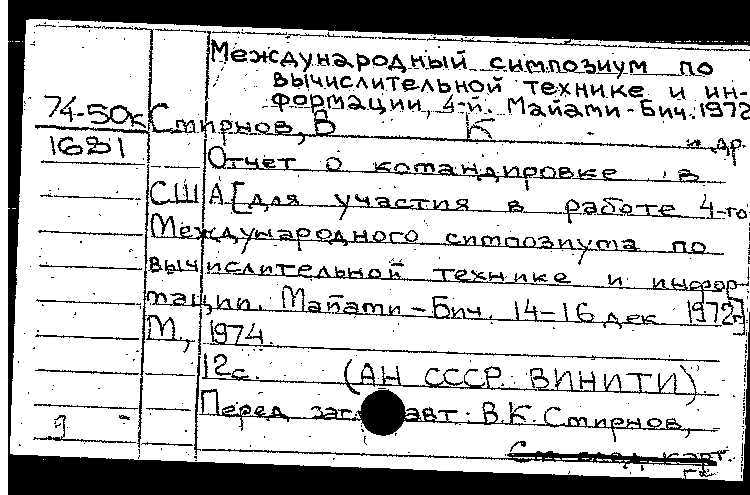 Международный симпозиум по
вычислительной технике и ин-
формации, 4-й. Майами-Бич. 1972
74-50к
1681
Смирнов, В К и др.
Отчет о командировке в
США [для участия в работе 4-го
Международного симпозиума по
вычислительной технике и инфор-
мации. Майами-Бич. 14-16 дек 1972г]
М., 1974.
12с. (АН СССР. ВИНИТИ)
Перед загл. авт. В.К. Смирнов,
См. след. карт.
9